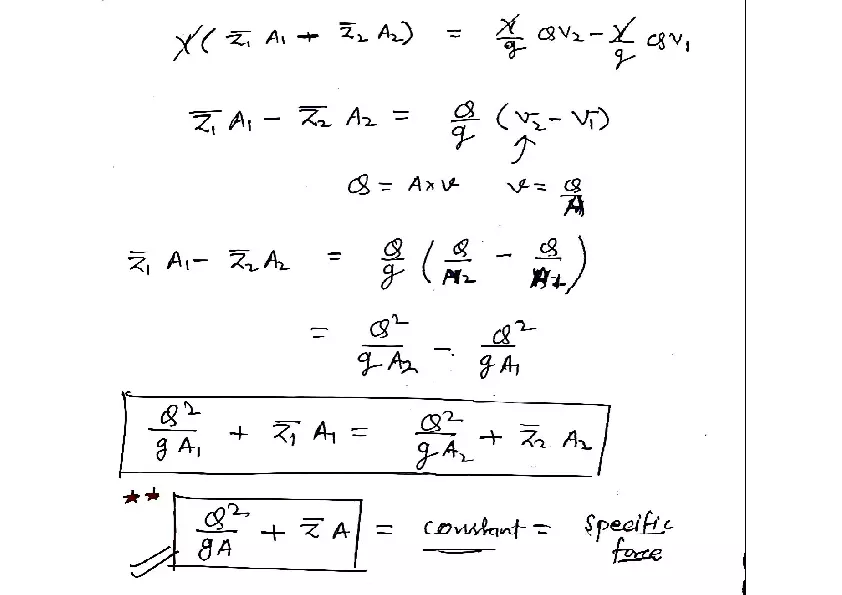 γ( z̅₁ A₁ + z̅₂ A₂) = γ/g Qv₂ - γ/g Qv₁
z̅₁ A₁ - z̅₂ A₂ = Q/g (v₂ - v₁)
Q = A × v v = Q/A
z̅₁ A₁ - z̅₂ A₂ = Q/g ( Q/A₂ - Q/A₁ )
= Q²/gA₂ - Q²/gA₁
Q²/gA₁ + z̅₁ A₁ = Q²/gA₂ + z̅₂ A₂
Q²/gA + z̅ A = constant = specific
force